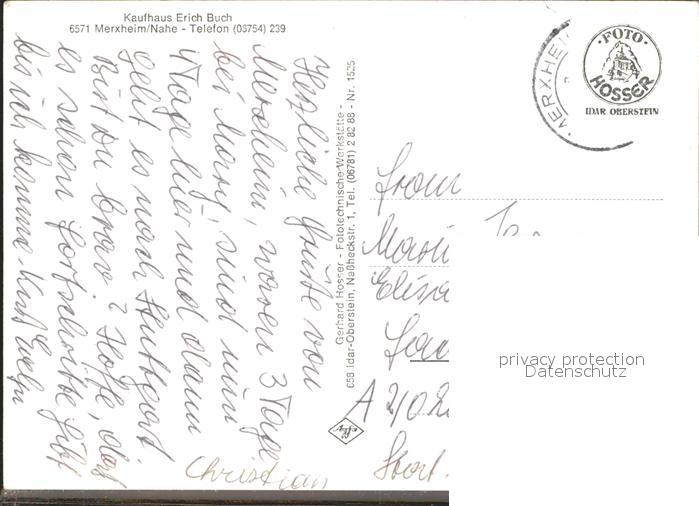 Kaufhaus Erich Buch
6571 Merxheim/Nahe - Telefon (06754) 239
Herzliche Grüße von
Merxheim, waren 3 Tage
bei Mary, sind nun
4 Tage hier und dann
geht es nach Stuttgart
Bist du brav? Hoffe, daß
es schon Fortschritte gibt
bis ich komme. Kurt Evelyn
Christian
Gerhard Hosser - Fototechnische Werkstätte -
658 Idar-Oberstein, Naßheckstr. 1, Tel. (06781) 2 82 88 - Nr. 1535
MERXHEI
·FOTO·
HOSSER
IDAR OBERSTEIN
Frau
A
privacy protection
Datenschutz